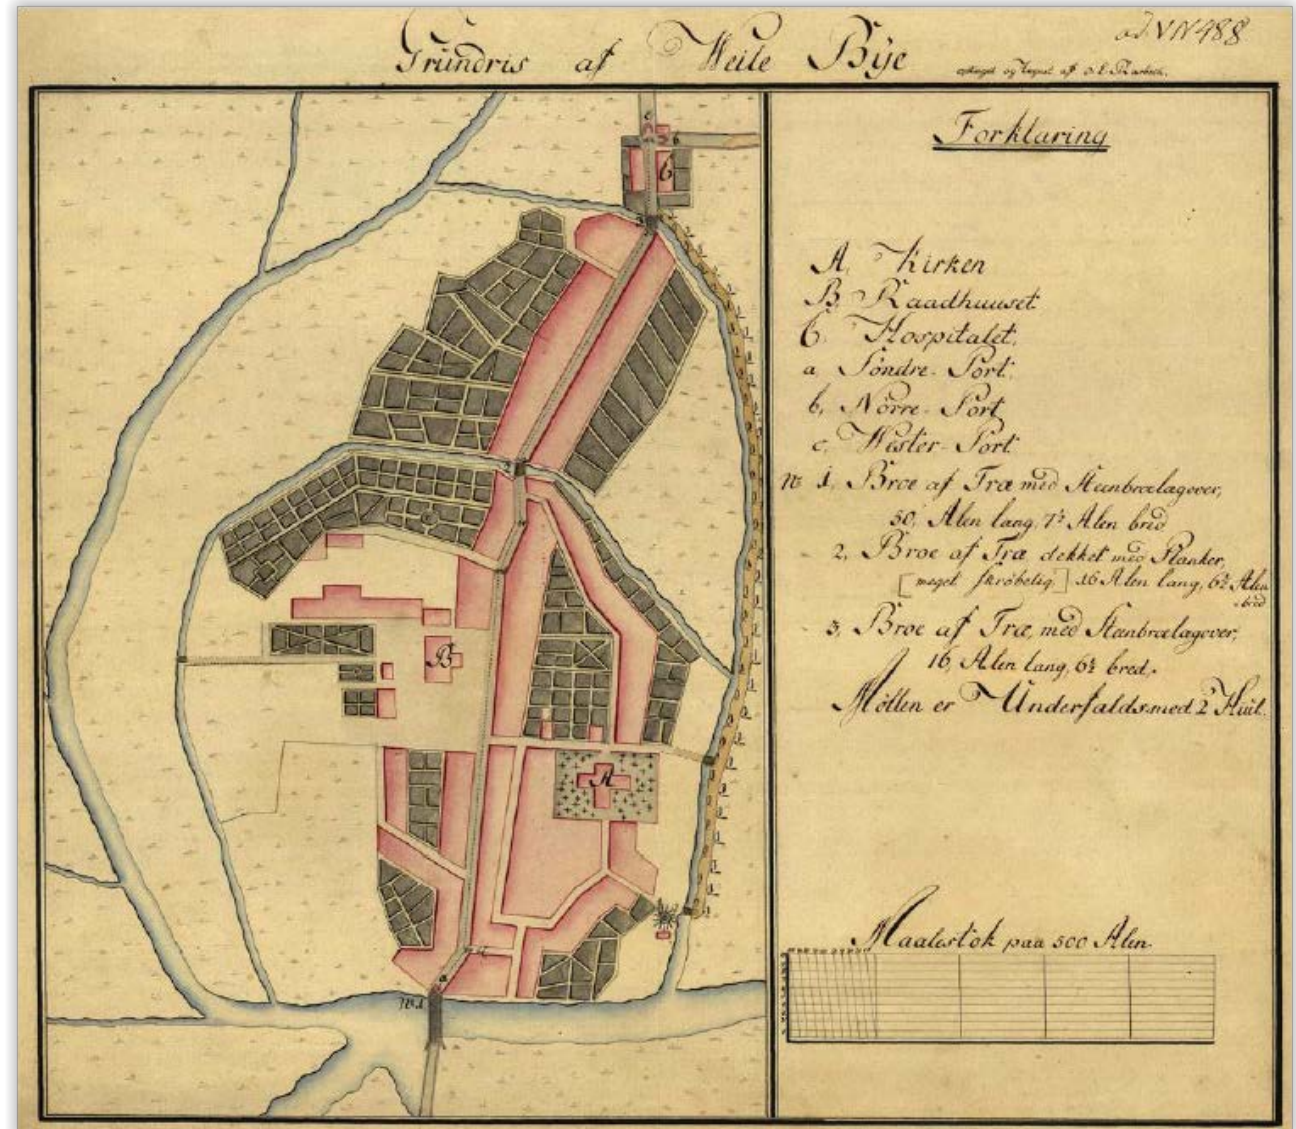 ad. VN 488
Grundris af Weile Bÿe
og af O. L.
Forklaring
A. Kirken
B. Raadhuuset
C. Hospitalet.
a. Söndre-Port.
b. Nörre-Port
c. Wester-Port
No 1. Broe af Træ med Steenbrolægover,
50, Alen lang, 7½ Alen bred
2, Broe af Træ dekket med Planker,
[meget skröbelig] 16 Alen lang, 6½ Alen
bred
3, Broe af Træ, med Steenbrolægover,
16, Alen lang, 6½ bred.
Möllen er Underfalds med 2 Huil.
Maalestok paa 500 Alen.
c
b
C
3
2
B
A
a
No 1